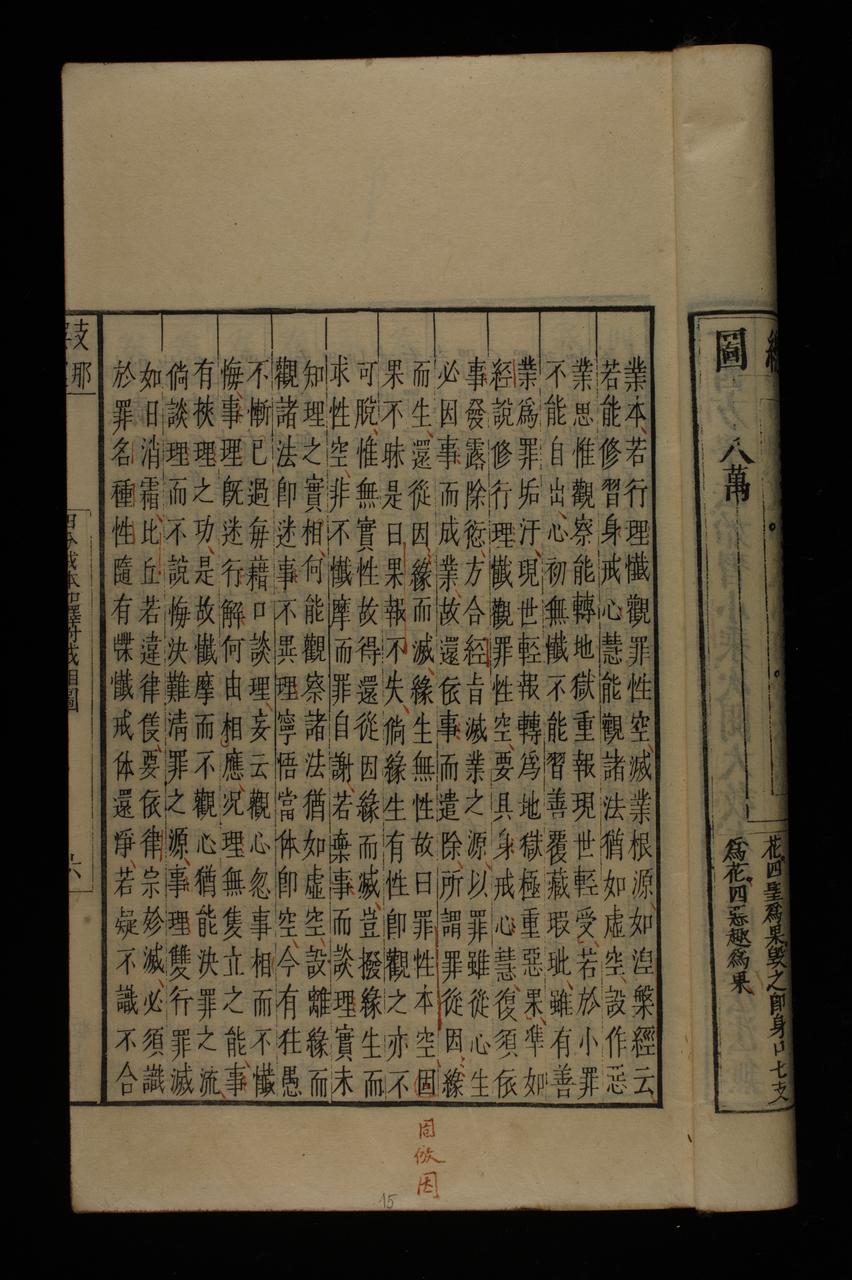 圖
八萬
花四聖爲果毀之卽身口七支
爲花四惡趣爲果
業本若行理懺觀罪性空滅業根源如湼槃經云
若能修習身戒心慧能觀諸法猶如虛空設作惡
業思惟觀察能轉地獄重報現世輕受若於小罪
不能自出心初無懺不能習善覆藏瑕玼雖有善
業爲罪垢汙現世輕報轉爲地獄極重惡果凖如
經說修行理懺觀罪性空要具身戒心慧復須依
事發露除愆方合經旨滅業之源以罪雖從心生
必因事而成業故還依事而遣除所謂罪從因緣
而生還從因緣而滅緣生無性故曰罪性本空固
果不昧是曰果報不失倘緣生有性卽觀之亦不
可脫惟無實性故得還從因緣而滅豈撥緣生而
求性空非不懺摩而罪自謝若棄事而談理實未
知理之實相何能觀察諸法猶如虛空設離緣而
觀諸法卽迷事不異理寧悟當体卽空今有狂愚
不慚已過每藉口談理妄云觀心忽事相而不懺
悔事理旣迷行解何由相應况理無隻立之能事
有裌理之功是故懺摩而不觀心猶能決罪之流
倘談理而不說悔決難淸罪之源事理雙行罪滅
如日消霜比丘若違律儀要依律宗妙滅必須識
於罪名種性隨有牒懺戒体還淨若疑不識不合
支那
六
固 因
15